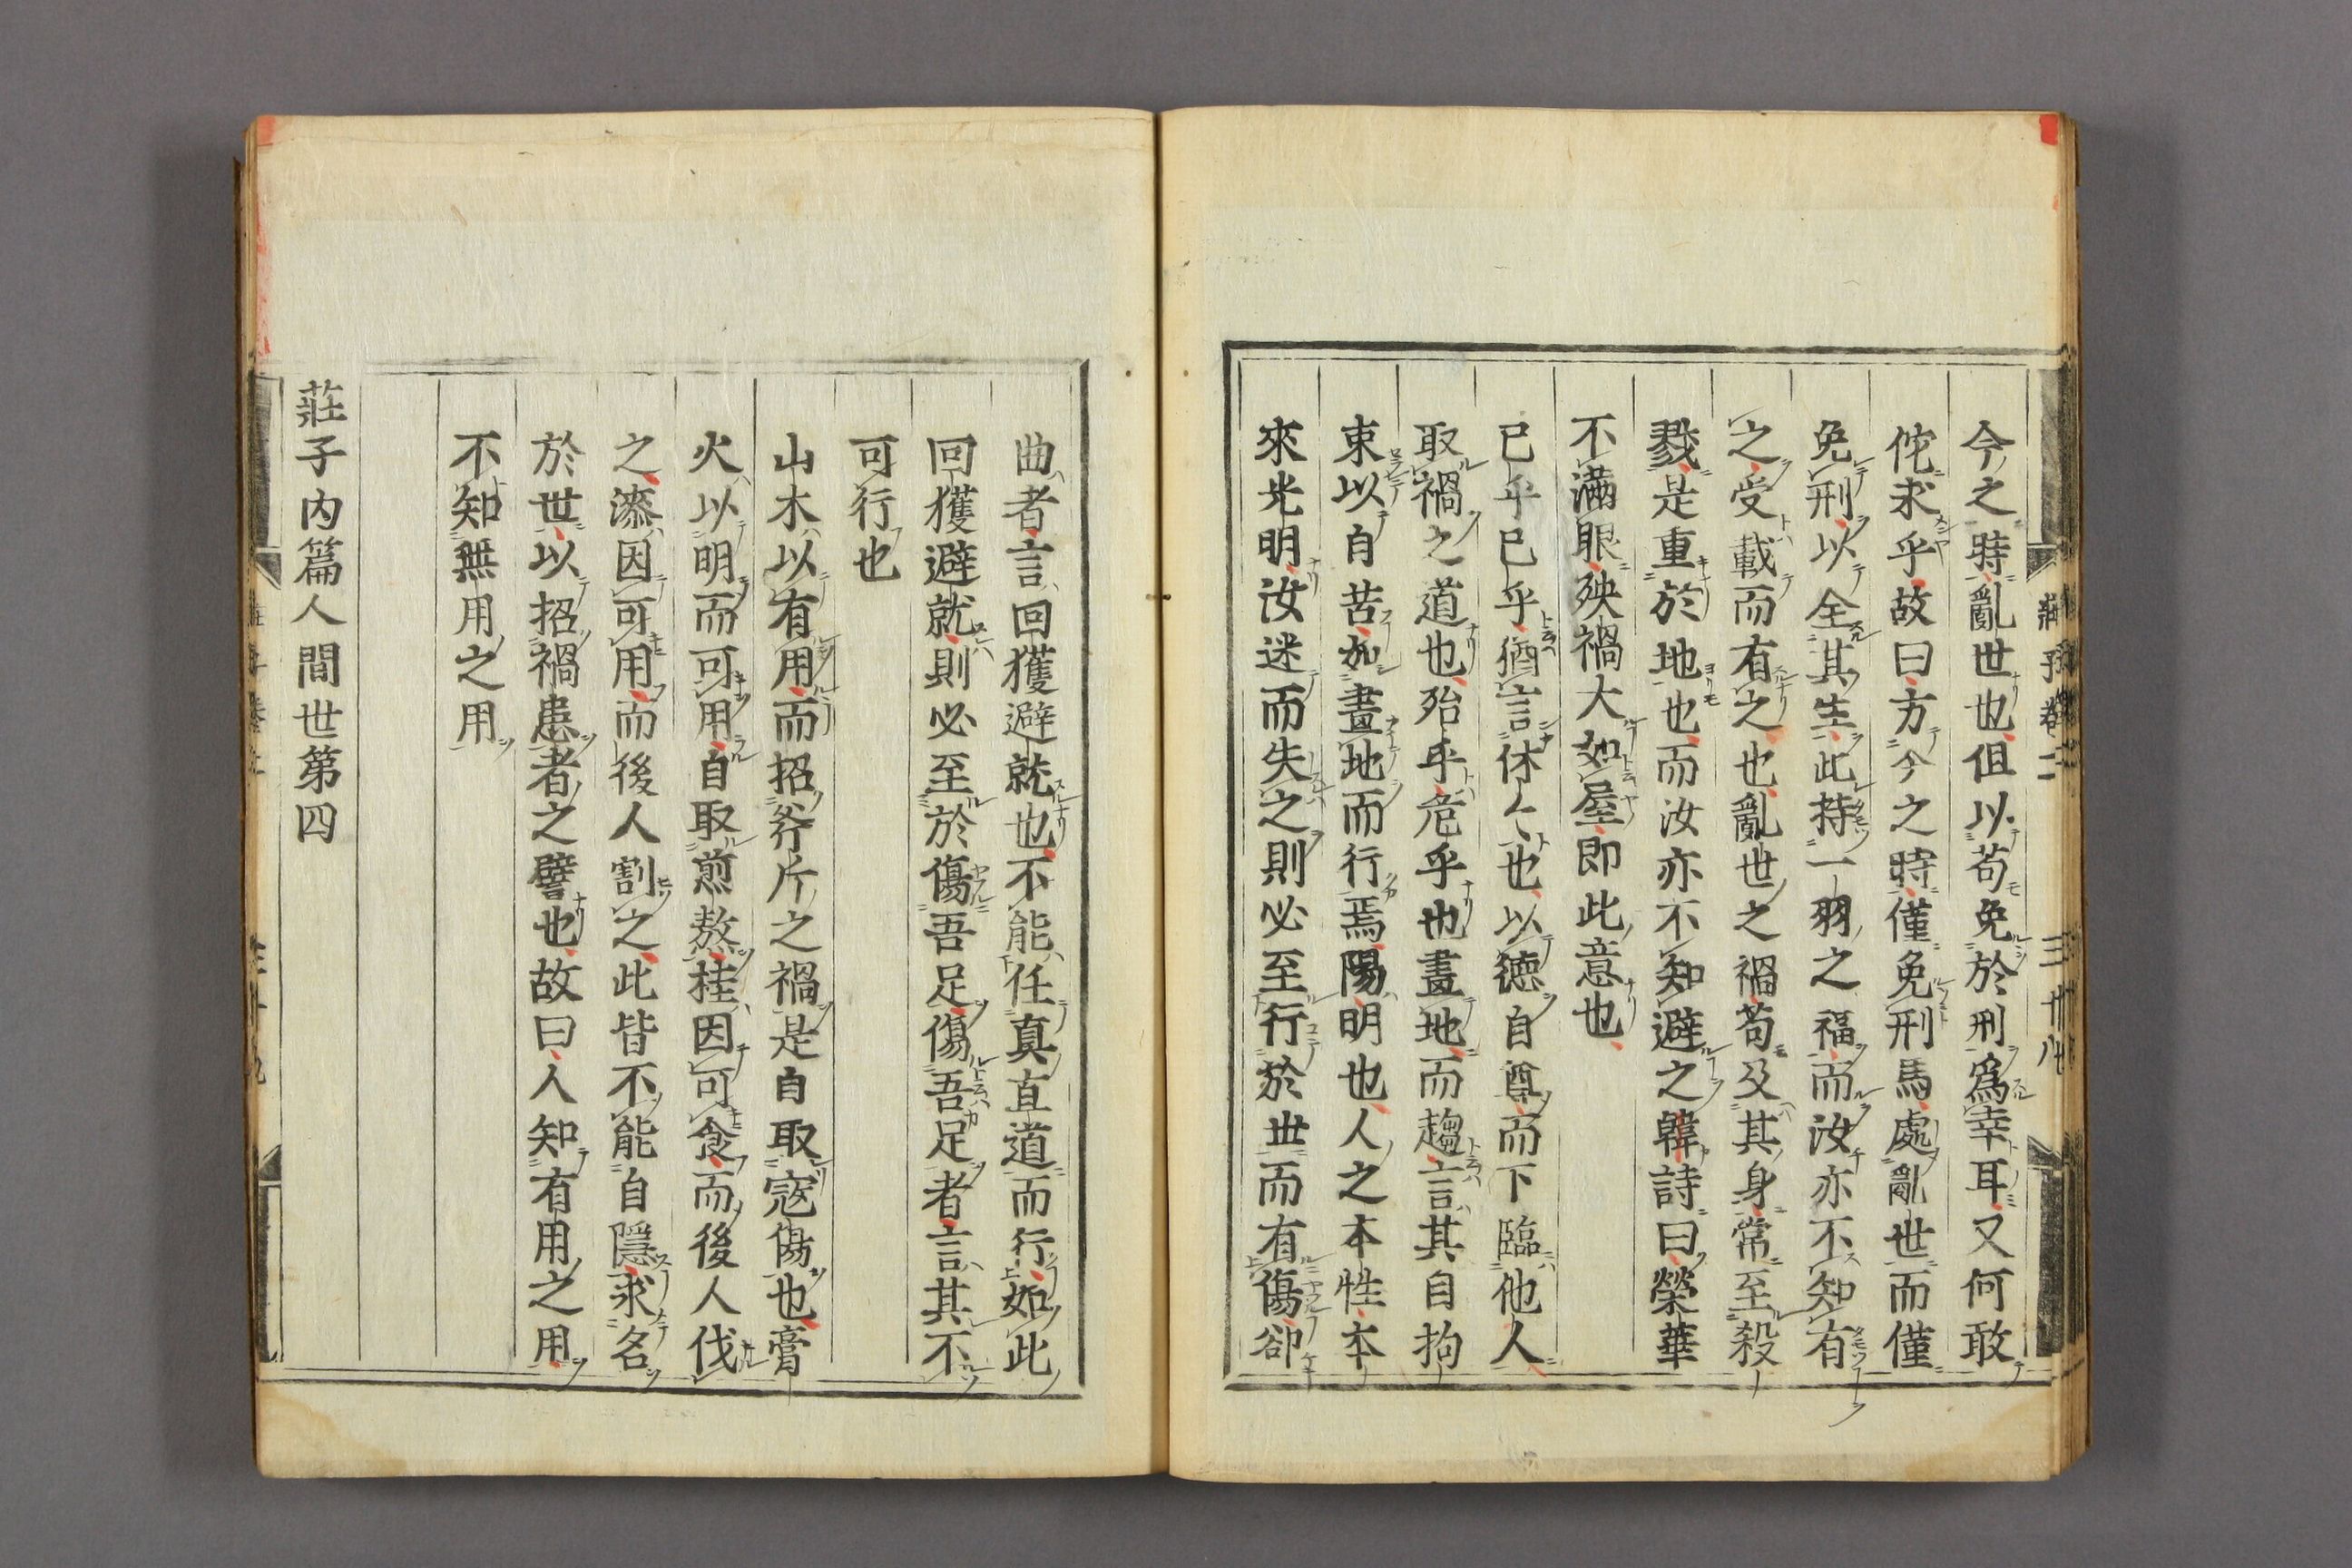 今之時亂世也但以苟免於刑爲幸耳又何敢
佗求乎故曰方今之時僅免刑焉處亂世而僅
免刑以全其生此持一羽之福而汝亦不知有
之受載而有之也亂世之禍苟及其身常至殺
戮是重於地也而汝亦不知避之韓詩曰榮華
不滿眼殃禍大如屋即此意也
已乎已乎猶言休〻也以德自尊而下臨他人
取禍之道也殆乎危乎也畫地而趨言其自拘
束以自苦如畫地而行焉陽明也人之本性本
來光明汝迷而失之則必至行於世而有傷卻
曲者言回獲避就也不能任真直道而行如此
回獲避就則必至於傷吾足傷吾足者言其不
可行也
山木以有用而招斧斤之禍是自取寇傷也膏
火以明而可用自取煎熬桂因可食而後人伐
之漆因可用而後人割之此皆不能自隱求名
於世以招禍患者之譬也故曰人知有用之用
不知無用之用
莊子内篇人間世第四